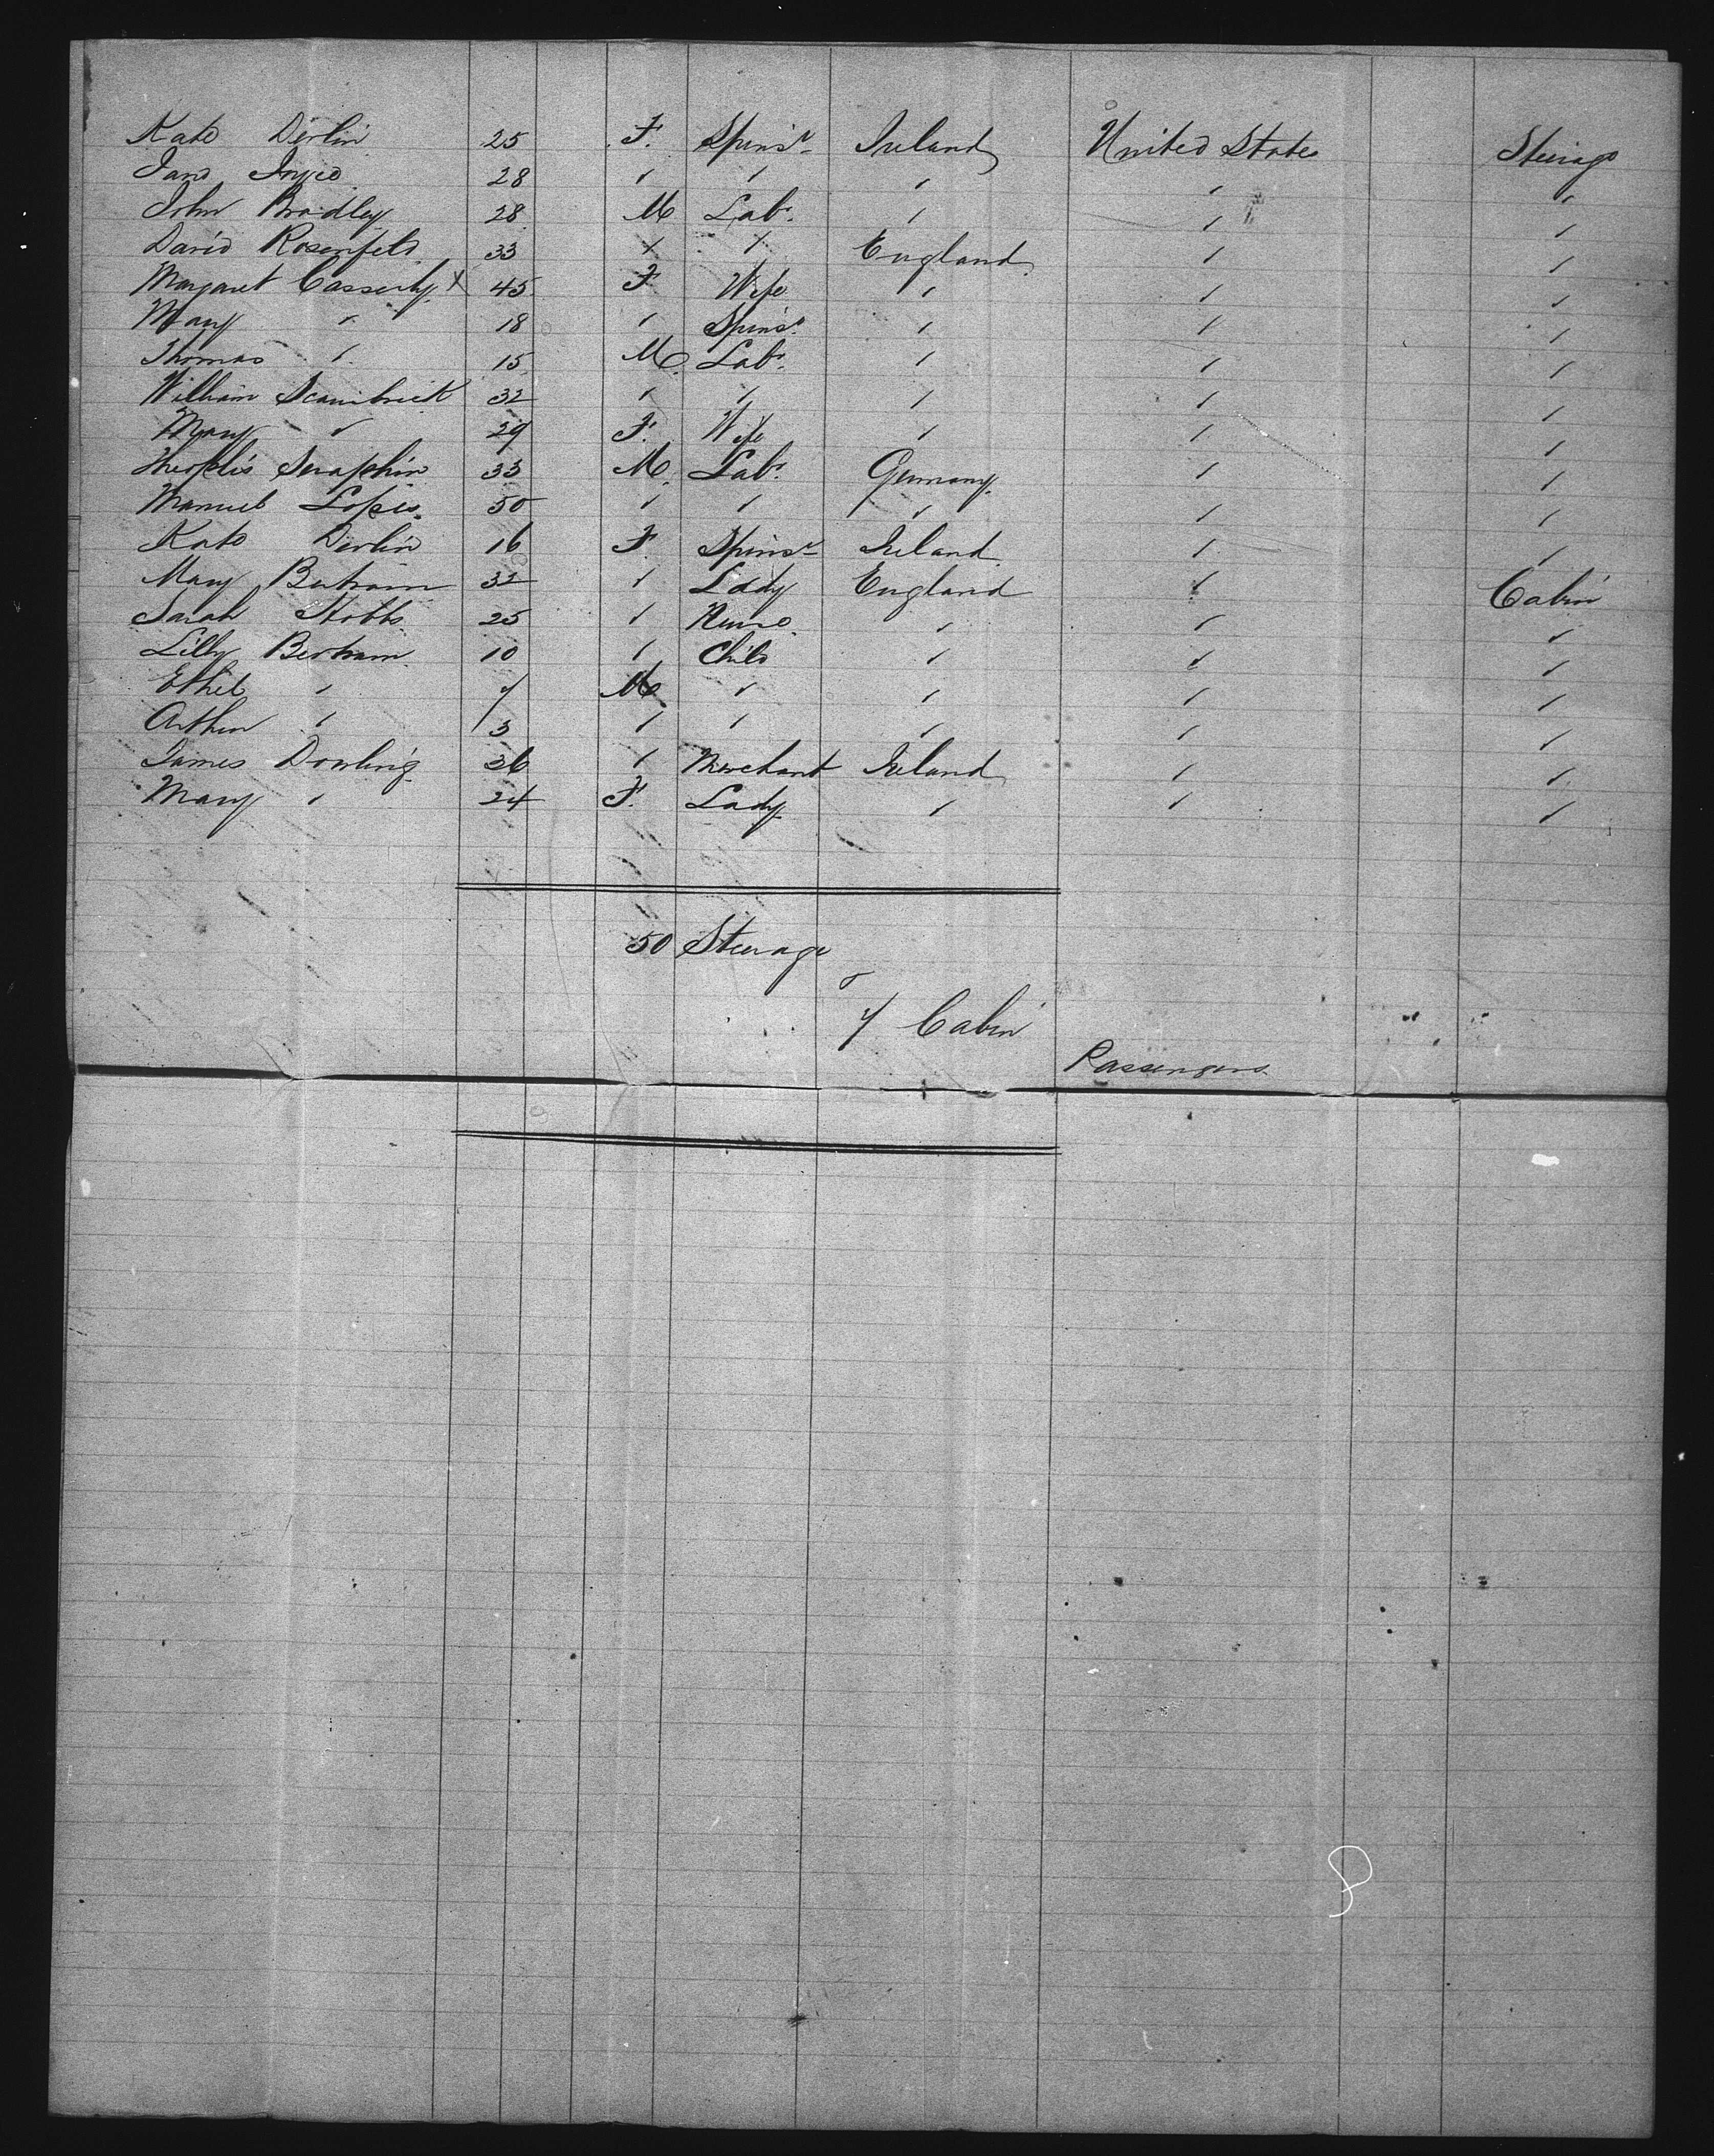 Kate Devlin 25 F. Spinsr Ireland United States Steerage
Jane Joyce 28 " " " " "
John Bradley 28 M Labr. " " "
David Rosenfeld 33 " " England " "
Margaret Casserly x 45 F Wife " " "
Mary " 18 " Spinsr. " " "
Thomas " 15 M. Labr. " " "
William Scambrick 32 " " " " "
Mary " 29 F. Wife " " "
Seraphin 33 M. Labr. Germany " "
Manuel Lopes. 50 " " " " "
Kate Devlin 16 F. Spinsr Ireland " "
Mary Bertram 32 " Lady England " Cabin
Sarah Hobbs 25 " Nurse " " "
Lilly Bertram 10 " Child " " "
Ethel " 7 M. " " " "
Arthur " 3 " " " " "
James Dowling 36 " Merchant Ireland " "
Mary " 24 F. Lady " " "
50 Steerage
7 Cabin
Passengers